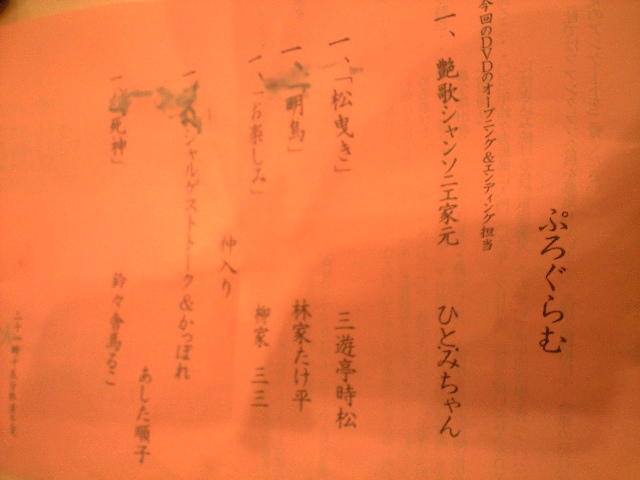 ぷろぐらむ
今回のDVDのオープニング&エンディング担当
一、艶歌シャンソニエ家元 ひとみちゃん
一、「松曳き」 三遊亭時松
一、「明烏」 林家たけ平
一、「お楽しみ」 柳家 三三
仲入り
一、スペシャルゲストトーク&かっぽれ
あした順子
一、「死神」 鈴々舎馬るこ